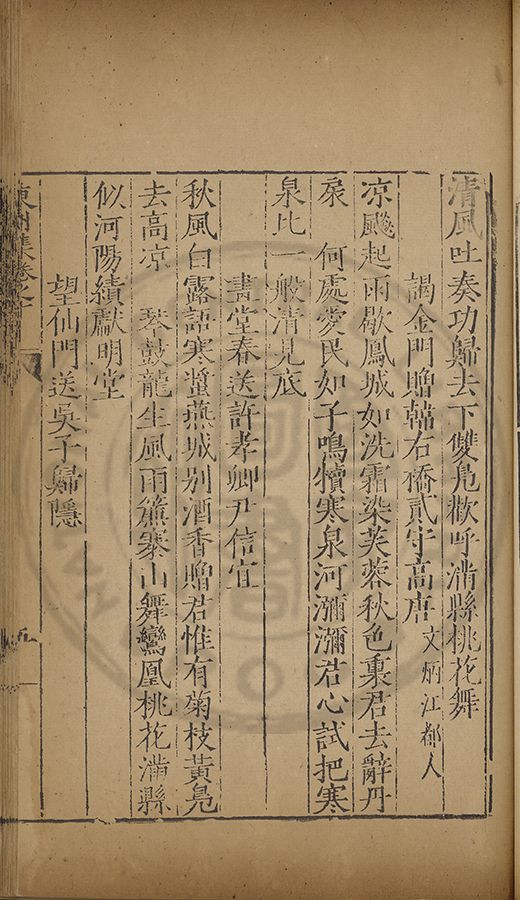 清風吐奏功歸去下雙鳧歡呼滿縣桃花舞
謁金門贈韓右橋貳守高唐 文炳江都人
凉飈起雨歇鳳城如洗霜染芙蓉秋色裏君去辭丹
扆 何處愛民如子鳴犢寒泉河瀰瀰君心試把寒
泉比一般清見底
畫堂春送許孝卿尹信宜
秋風白露語寒螿燕城别酒香贈君惟有菊枝黄鳧
去高凉 琴鼓龍生風雨簫寨山舞鸞凰桃花滿縣
似河陽績獻明堂
望仙門送吳子歸隱
集卷之
九